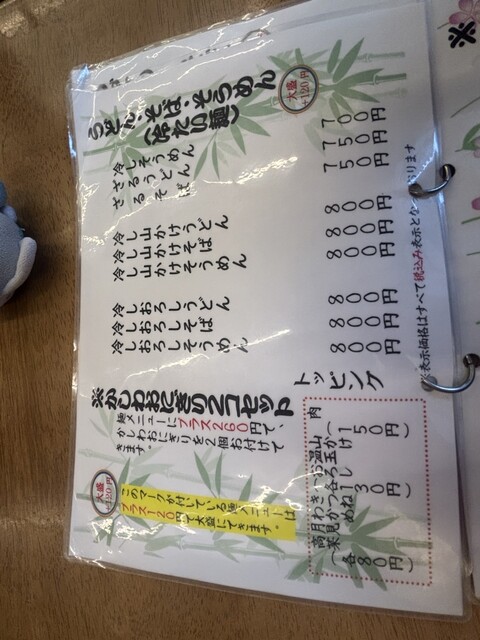 うどん・そば・そうめん
(冷たい麺)
大盛
+120円
冷しそうめん 700円
ざるうどん 750円
ざるそば 750円
冷し山かけうどん 800円
冷し山かけそば 800円
冷し山かけそうめん 800円
冷しおろしうどん 800円
冷しおろしそば 800円
冷しおろしそうめん 800円
※かしわおにぎり2コセット
麺メニューにプラス260円で、
かしわおにぎりを2個お付けで
きます。
大盛
+120円
このマークが付いている麺メニューは
プラス120円で大盛にできます。
トッピング
肉
山かけ
150円)
温玉
30円)
(各80円)
※表示価格はすべて税込み表示となっております
※